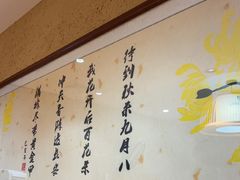 待到秋来九月八
我花开后百花杀
冲天香阵透长安
满城尽带黄金甲